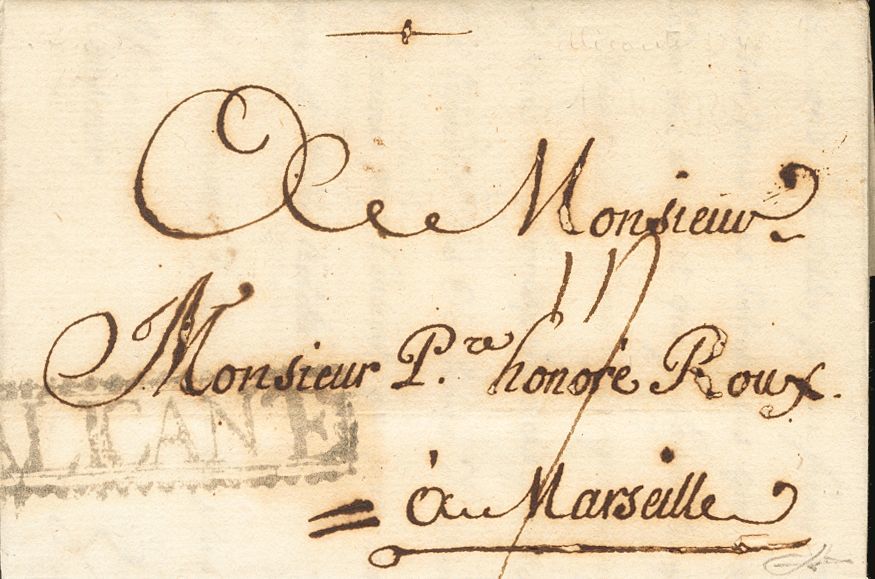 A Monsieur
Monsieur P.re honoré Roux.
ALICANTE
à Marseille